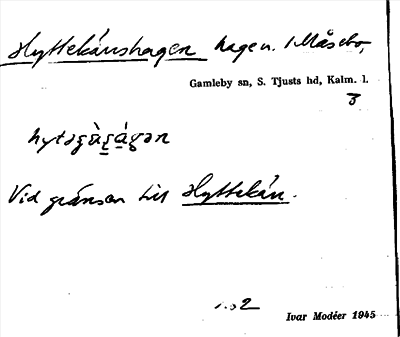 Hyttekånshagen hage n. i Måsebo,
Gamleby sn, S. Tjusts hd, Kalm. l.
3
Vid gränsen till Hyttekån.
Ivar Modéer 1945